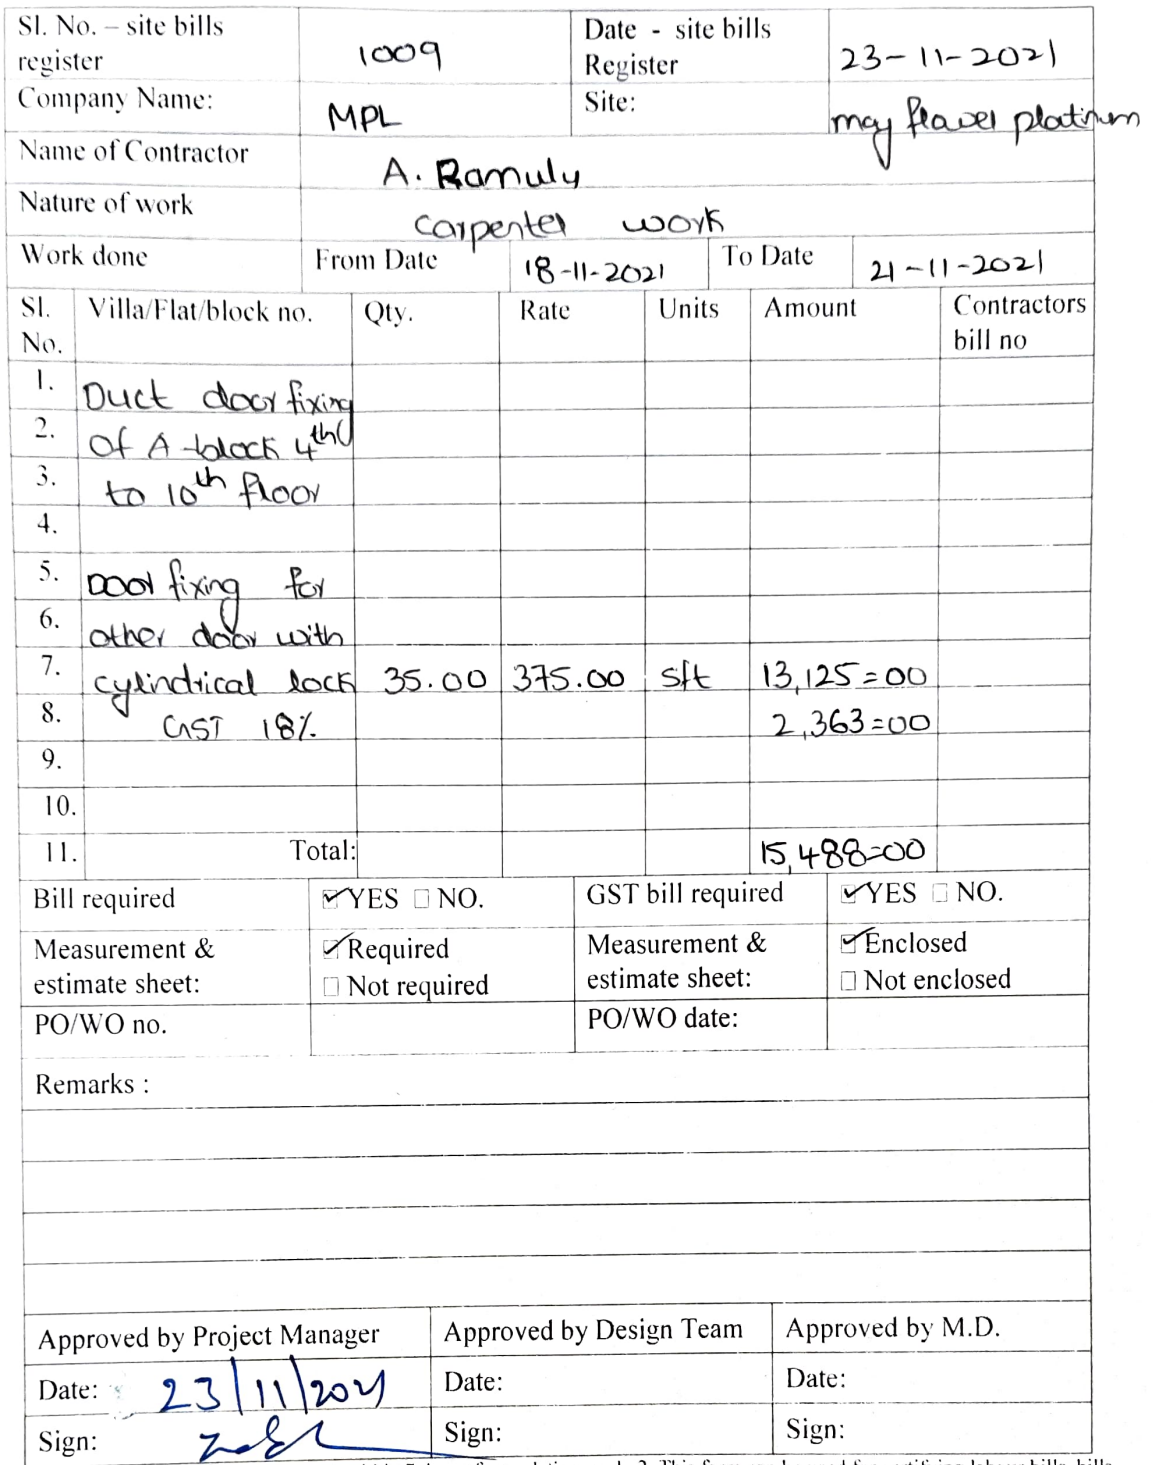 Sl. No. – site bills register 1009 Date - site bills Register 23-11-2021
Company Name: MPL Site: may flawer platinum
Name of Contractor A. Ramulu
Nature of work carpenter work
Work done From Date 18-11-2021 To Date 21-11-2021
Sl. No. Villa/Flat/block no. Qty. Rate Units Amount Contractors bill no
1. Duct door fixing
2. Of A-block 4th
3. to 10th floor
4.
5. Door fixing for
6. other door with
7. cylindrical lock 35.00 375.00 sft 13,125=00
8. GST 18% 2,363=00
9.
10.
11. Total: 15,488=00
Bill required YES NO. GST bill required YES NO.
Measurement & estimate sheet: Required Not required Measurement & estimate sheet: Enclosed Not enclosed
PO/WO no. PO/WO date:
Remarks :
Approved by Project Manager Approved by Design Team Approved by M.D.
Date: 23/11/2021 Date: Date:
Sign: Sign: Sign: